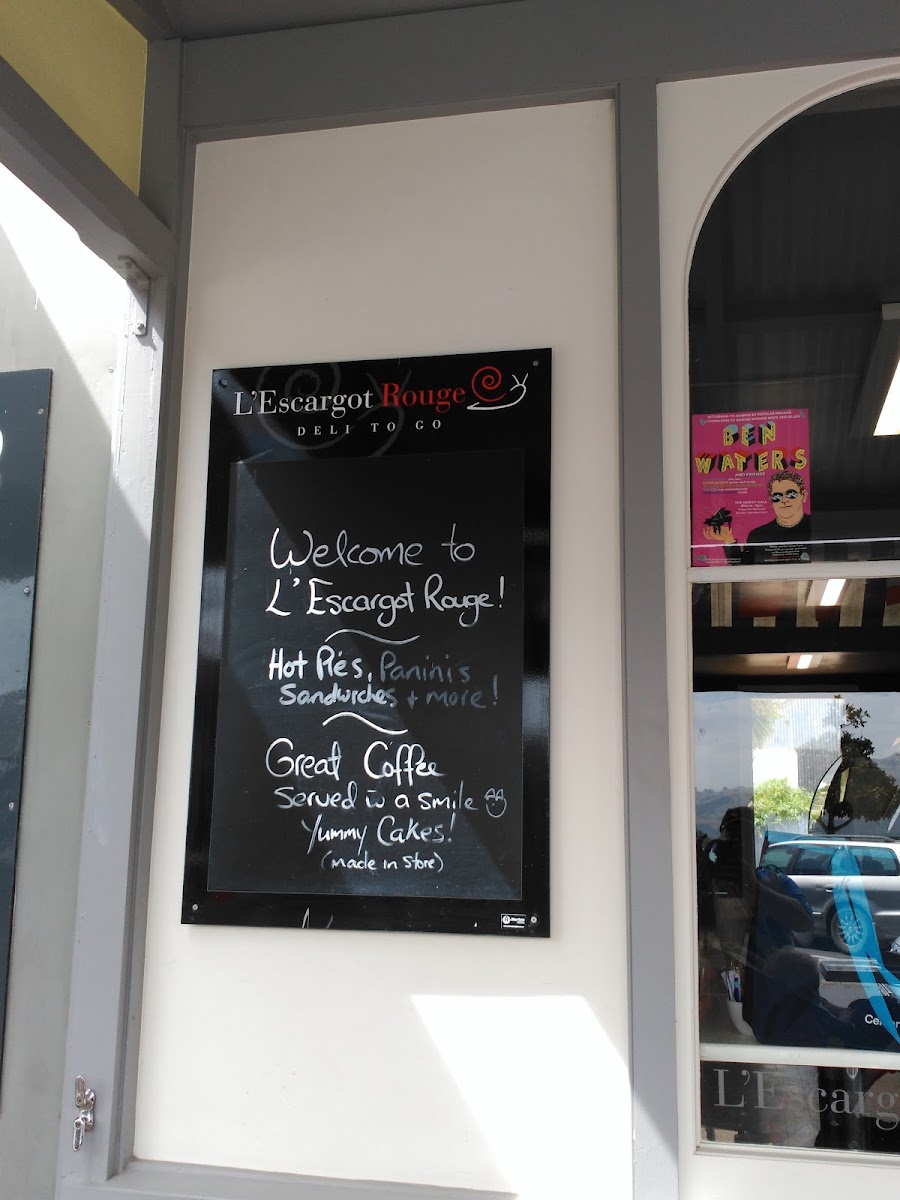 L'Escargot Rouge
DELI TO GO
Welcome to
L'Escargot Rouge!
Hot Pies, Panini's
Sandwiches + more!
Great Coffee
Served w a smile
Yummy Cakes!
(made in store)
BEN
WATERS
L'Escarg